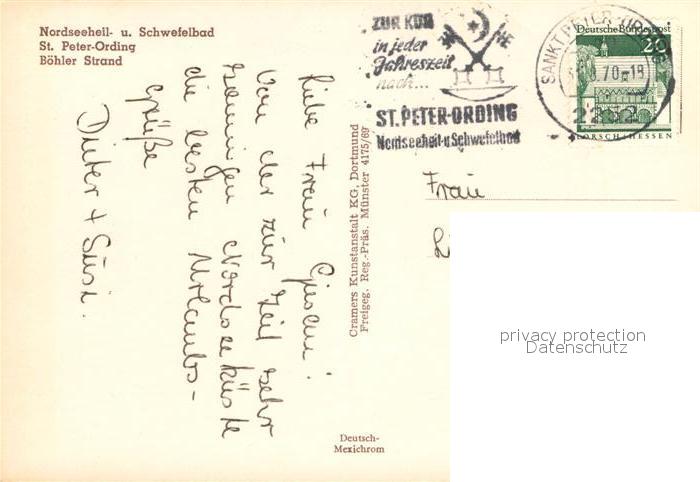 Nordseeheil- u. Schwefelbad
St. Peter-Ording
Böhler Strand
ZUR KUR
in jeder
Jahreszeit
nach...
ST. PETER-ORDING
Nordseeheil-u Schwefelbad
SANKT PETER-ORDING
70-18
2252
Deutsche Bundespost
20
LORSCH/HESSEN
Liebe Frau
Von der zur Zeit sehr
sonnigen Nordseeküste
die besten Urlaubs-
grüße
Dieter + Susi.
Cramers Kunstanstalt KG, Dortmund
Freigeg. Reg.-Präs. Münster 4175/69
Frau
privacy protection
Datenschutz
Deutsch-
Mexichrom